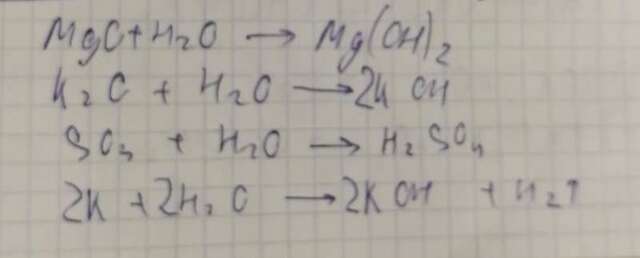 MgO + H₂O → Mg(OH)₂
K₂O + H₂O → 2KOH
SO₃ + H₂O → H₂SO₄
2K + 2H₂O → 2KOH + H₂↑